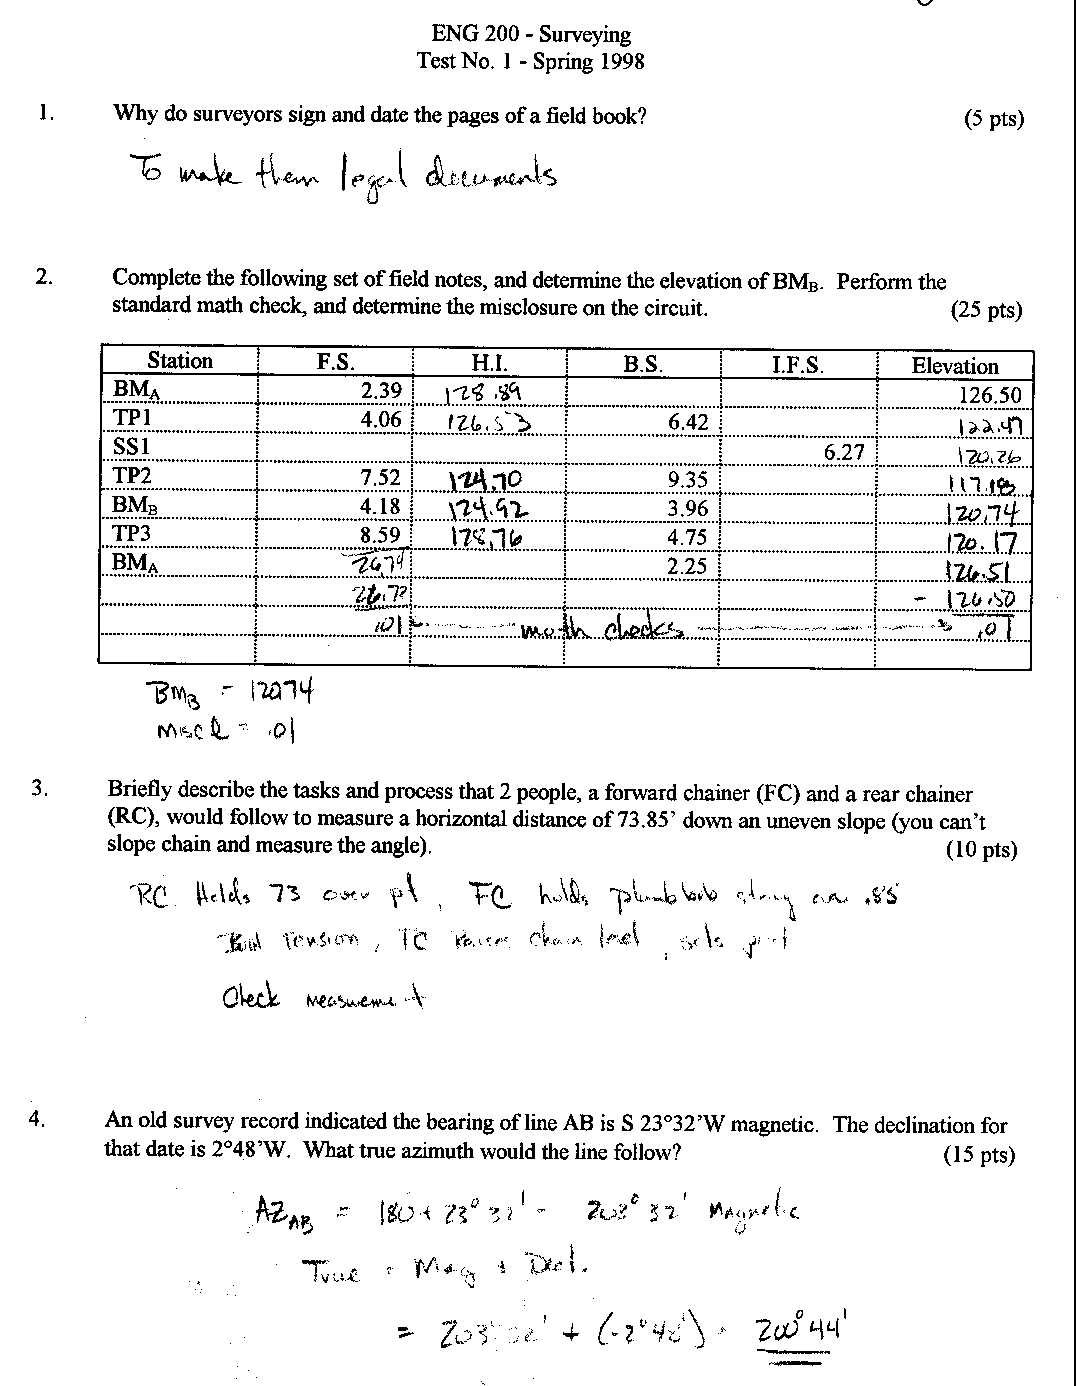 ENG 200 - Surveying
Test No. 1 - Spring 1998
1. Why do surveyors sign and date the pages of a field book? (5 pts)
To make them legal documents
2. Complete the following set of field notes, and determine the elevation of BMB. Perform the
standard math check, and determine the misclosure on the circuit. (25 pts)
Station F.S. H.I. B.S. I.F.S. Elevation
BMA 2.39 128.89 126.50
TP1 4.06 126.53 6.42 122.47
SS1 6.27 120.26
TP2 7.52 124.70 9.35 117.18
BMB 4.18 124.92 3.96 120.74
TP3 8.59 128.76 4.75 120.17
BMA 26.74 2.25 126.51
26.73 - 126.50
.01 math checks .01
BMB = 120.74
Miscl = .01
3. Briefly describe the tasks and process that 2 people, a forward chainer (FC) and a rear chainer
(RC), would follow to measure a horizontal distance of 73.85’ down an uneven slope (you can’t
slope chain and measure the angle). (10 pts)
RC Holds 73 over pt, FC holds plumb bob string on .85
Tension, chain level, sets
Check measurement
4. An old survey record indicated the bearing of line AB is S 23°32’W magnetic. The declination for
that date is 2°48’W. What true azimuth would the line follow? (15 pts)
AZAB = 180 + 23° 32' = 203° 32' Magnetic
True = Mag + Decl.
= 203° 32' + (-2° 48') = 200° 44'